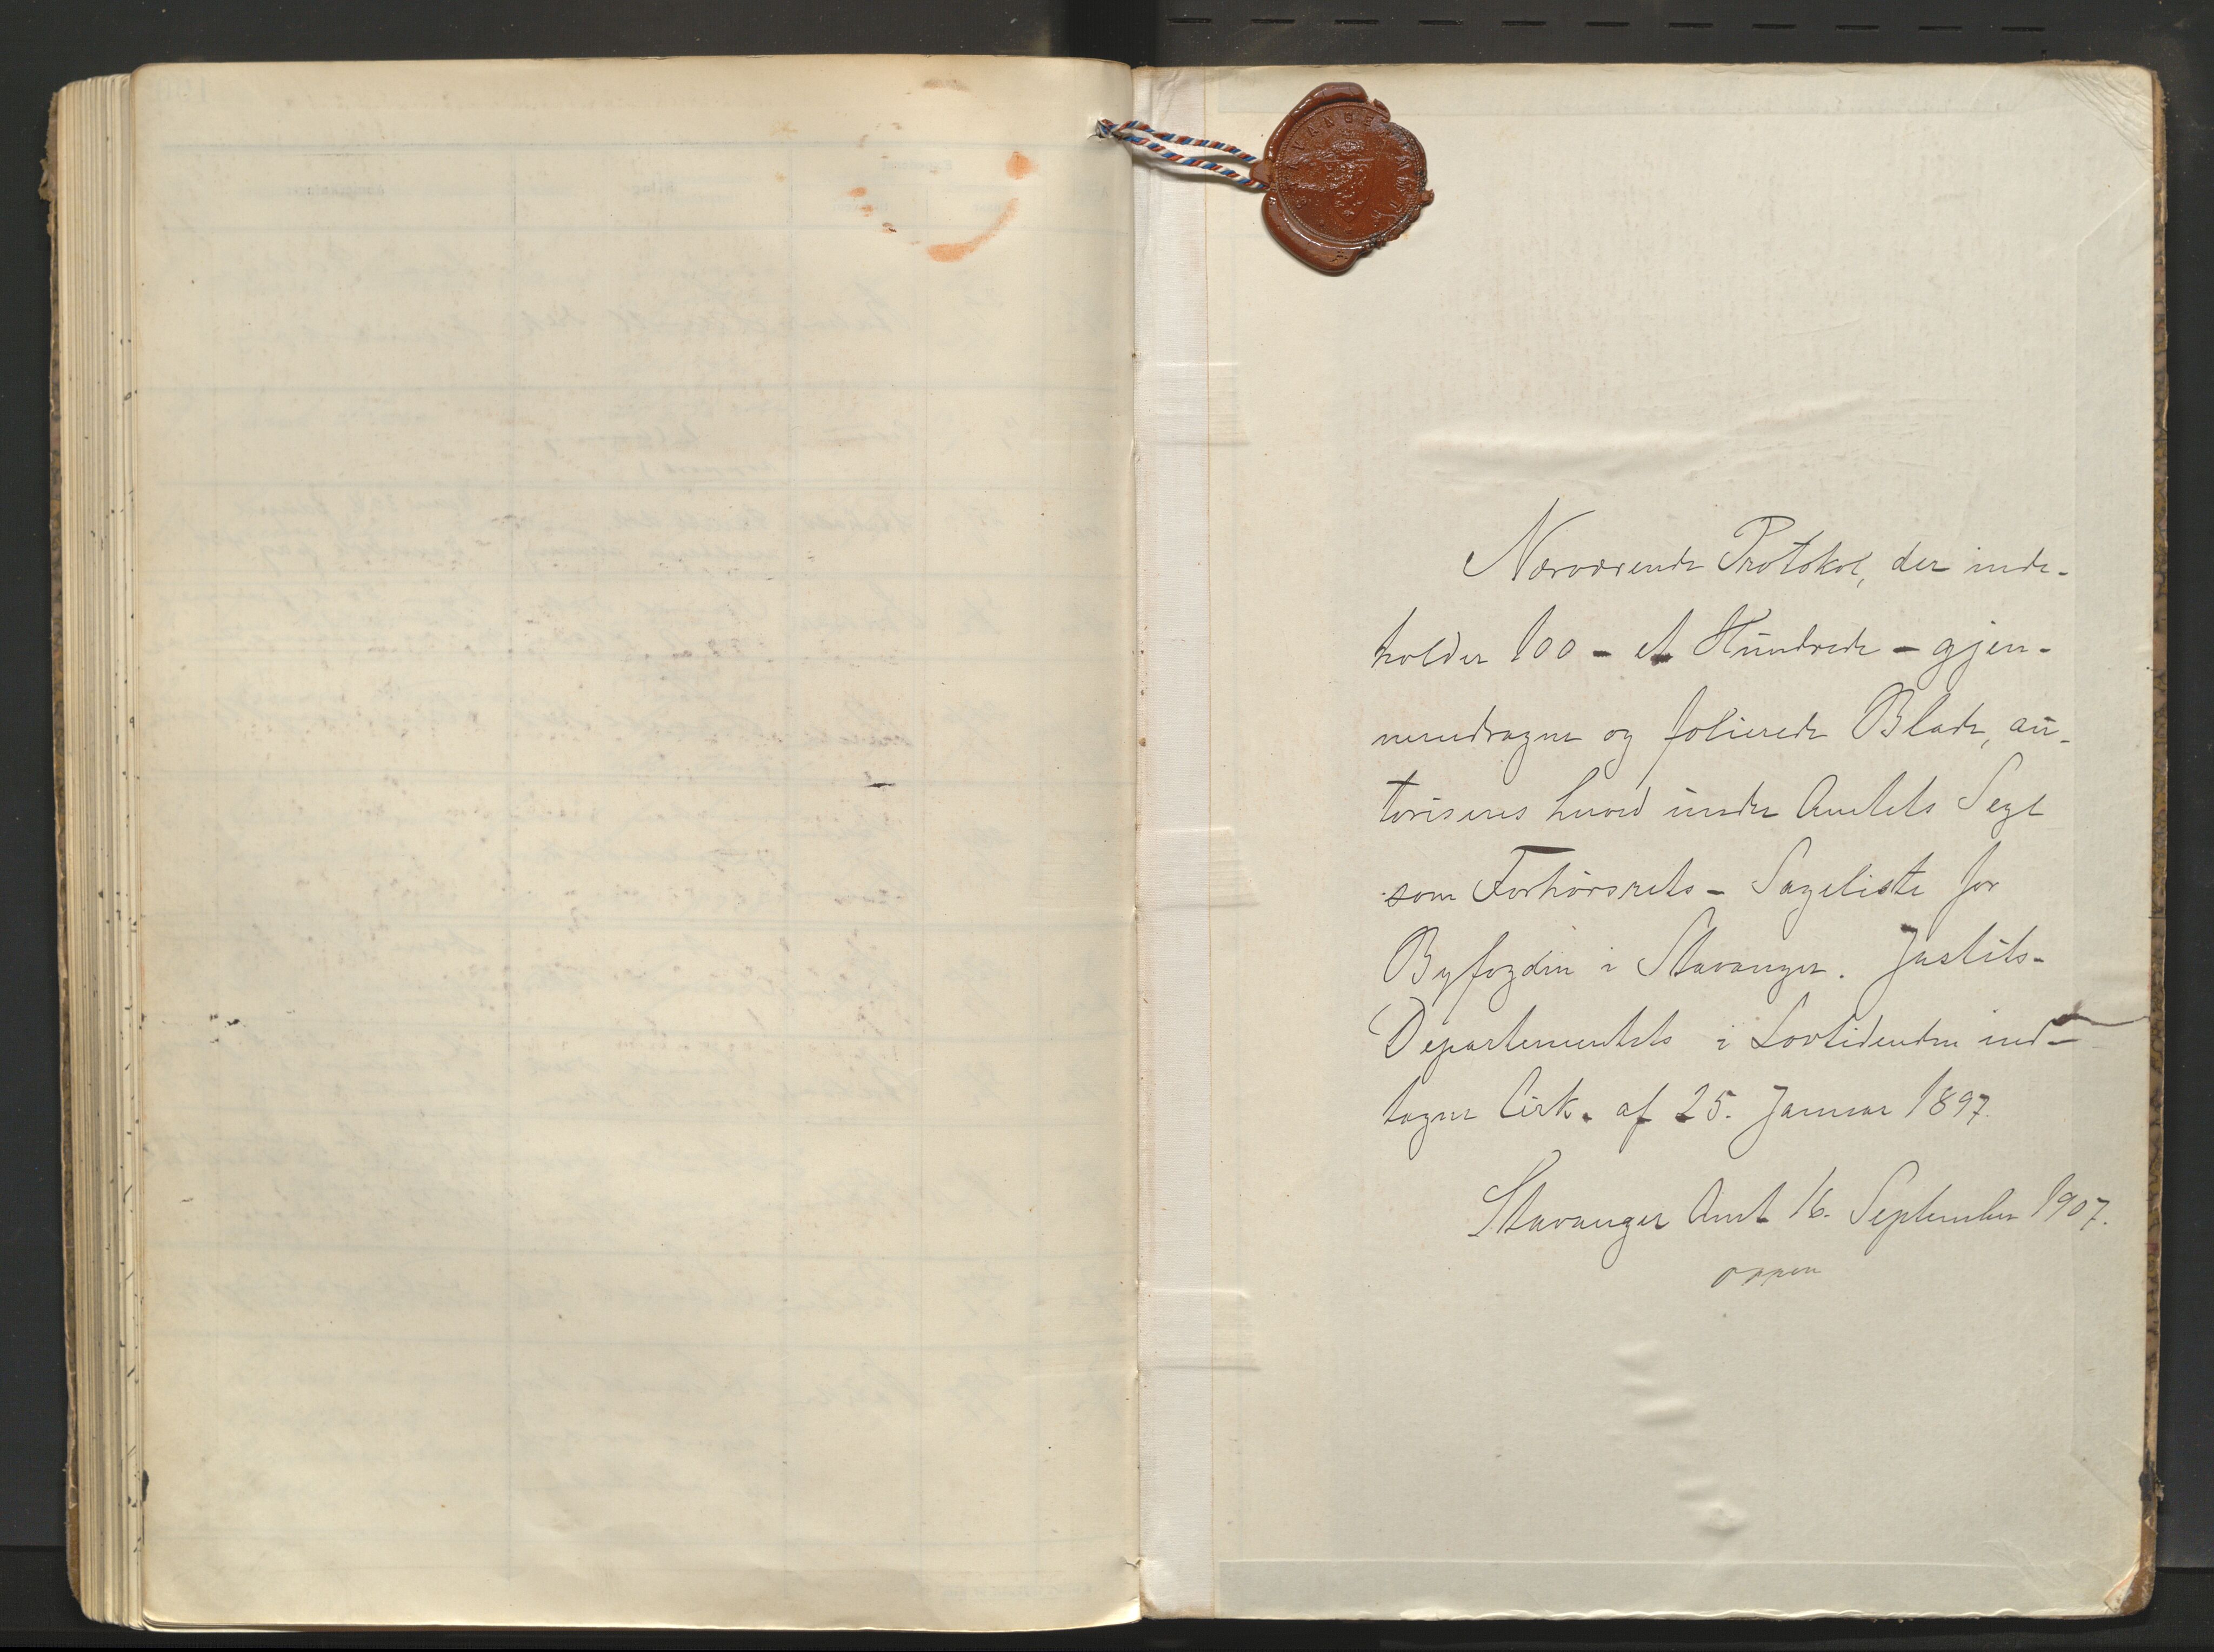 Nærværende Protokol, der inde-
holder 100 - et Hundrede - gjen-
nemdragne og folierede Blade, au-
toriseres herved under Amtets Segl
som Forhørsrets - Sageliste for
Byfogden i Stavanger. Justits-
Departementets i Lovtidenden ind-
tagne Cirk. af 25. Januar 1897.
Stavanger Amt 16. September 1907.